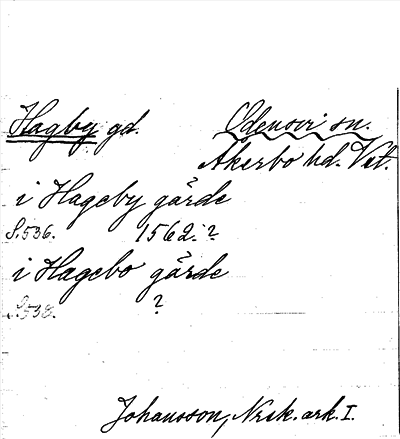 Hagby gd. Odensvi sn.
Åkerbo hd. Vst.
i Hageby gärde
S. 536. 1562. ?
i Hagebo gärde
S. 538. ?
Johansson, Nrik. ark. I.